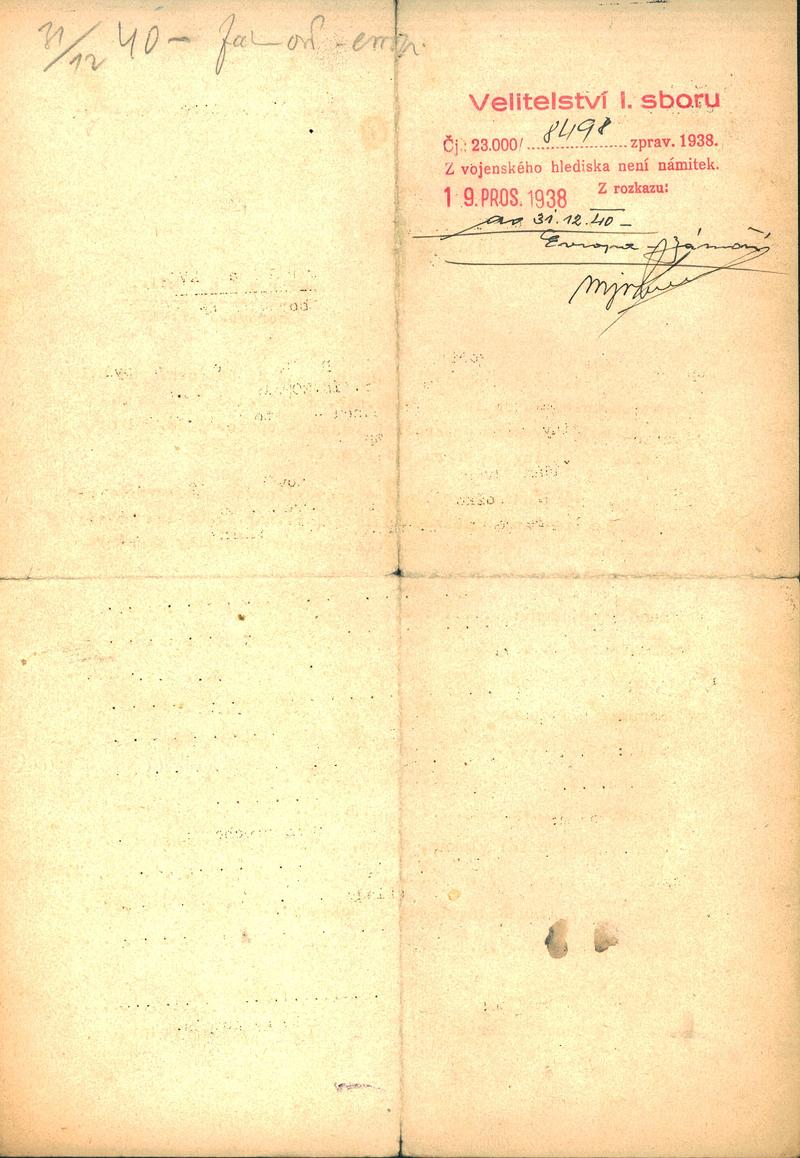 31/12 40 –
Velitelství I. sboru
Čj.: 23.000/ 8498 zprav. 1938.
Z vojenského hlediska není námitek.
19. PROS. 1938 Z rozkazu:
do 31.12.40 –
Evropa – Zámoří